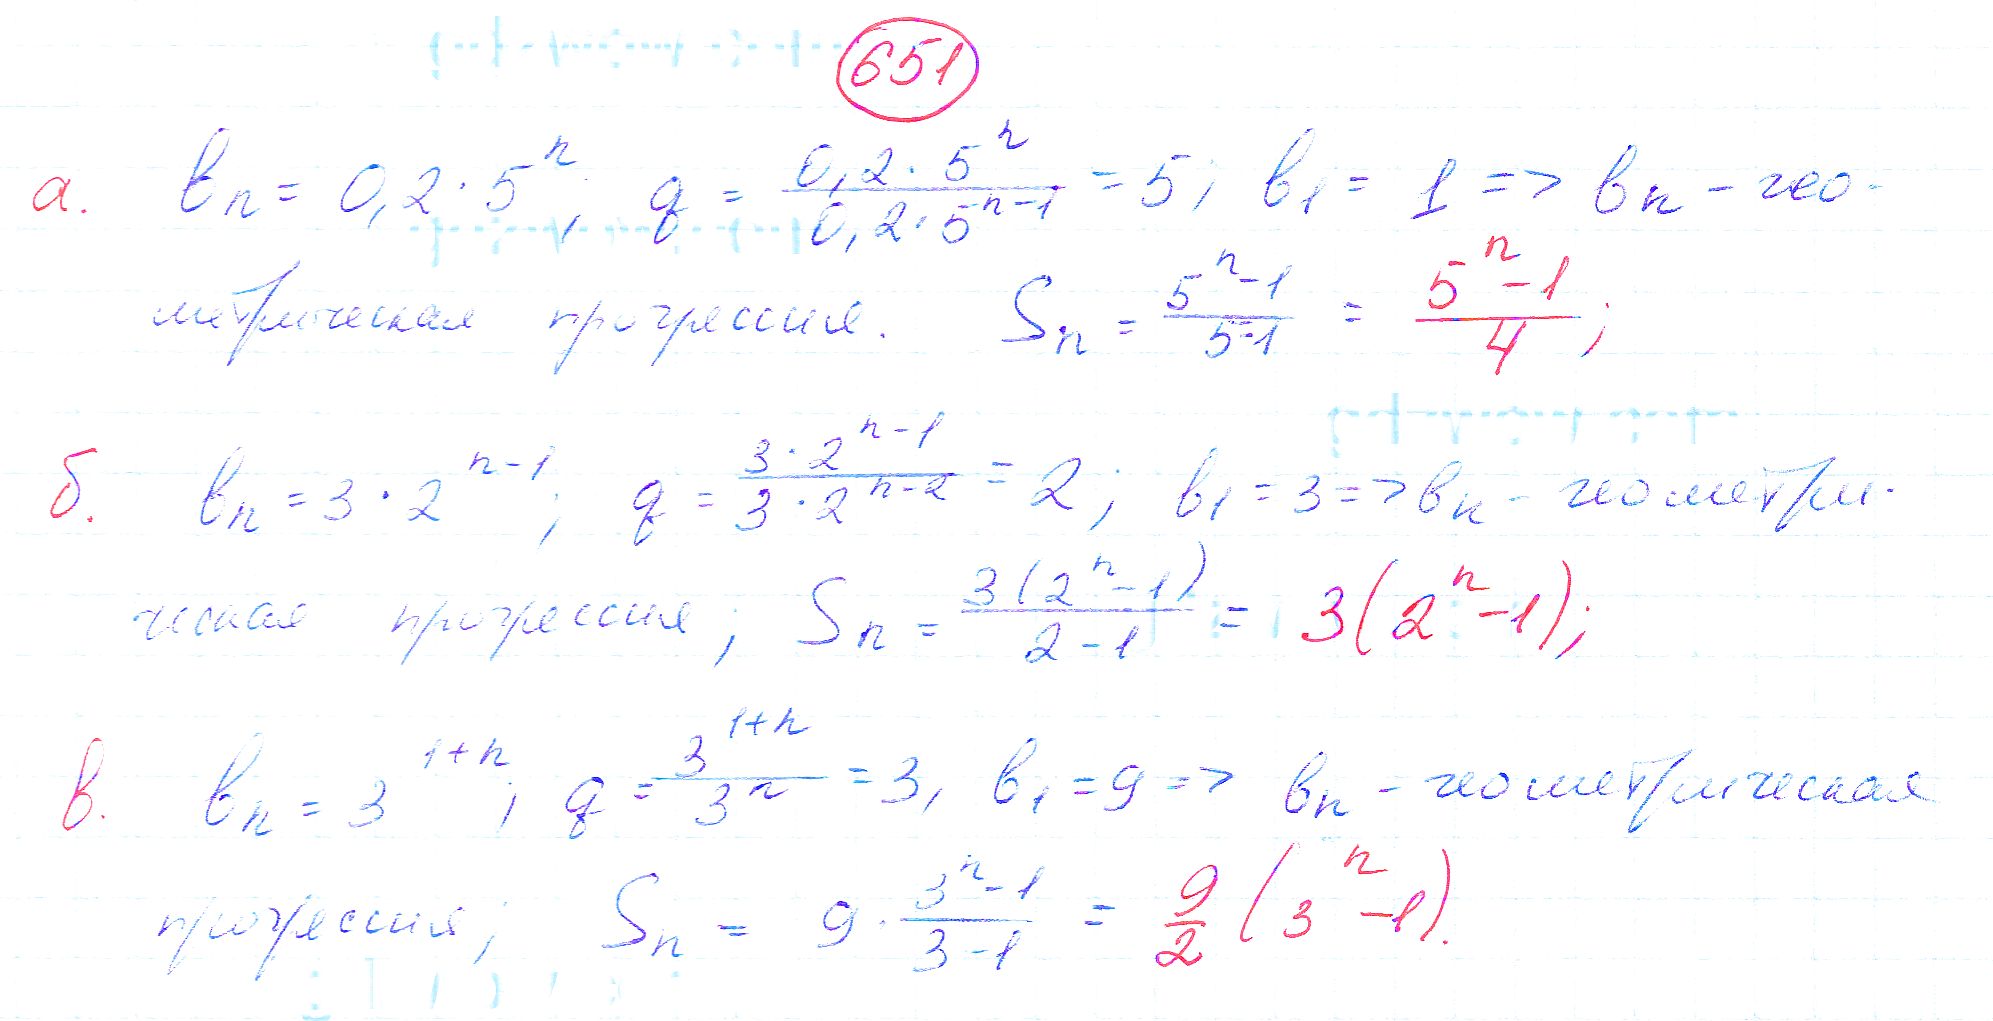 651
а. bₙ = 0,2 · 5ⁿ; q = (0,2 · 5ⁿ)/(0,2 · 5ⁿ⁻¹) = 5; b₁ = 1 => bₙ - гео-
метрическая прогрессия. Sₙ = (5ⁿ-1)/(5-1) = (5ⁿ-1)/4;
б. bₙ = 3 · 2ⁿ⁻¹; q = (3 · 2ⁿ⁻¹)/(3 · 2ⁿ⁻²) = 2; b₁ = 3 => bₙ - геометри-
ческая прогрессия; Sₙ = 3(2ⁿ-1)/(2-1) = 3(2ⁿ-1);
в. bₙ = 3¹⁺ⁿ; q = 3¹⁺ⁿ/3ⁿ = 3, b₁ = 9 => bₙ - геометрическая
прогрессия; Sₙ = 9 · (3ⁿ-1)/(3-1) = 9/2 (3ⁿ-1).